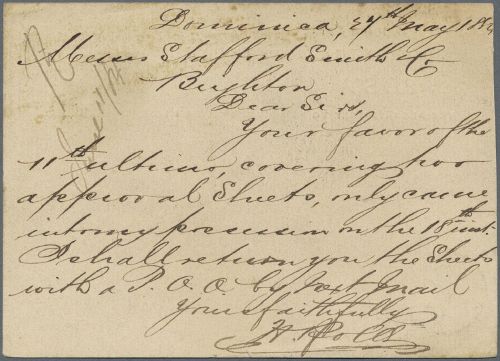 Dominica, 27th May 18
Messrs Stafford Smith & Co
Brighton
Dear Sirs,
Your favor of the
11th ultimo, covering two
approval Sheets, only came
into my possession on the 18th inst.
I shall return you the Sheets
with a P. O. O. by next Mail
Yours faithfully